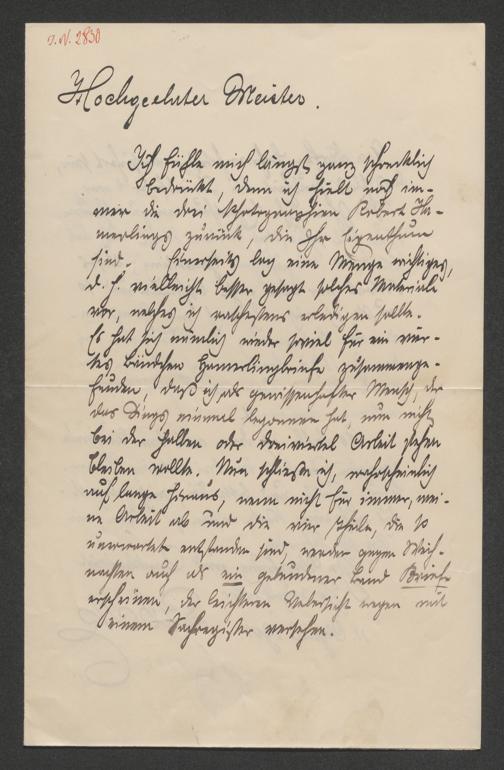 J. N. 2830
Hochgeehrter Meister.
Ich fühle mich längst ganz schrecklich
bedrückt, denn ich hielt noch im-
mer die drei Photographien Robert Ha-
merlings zurück, die Ihr Eigenthum
sind. Einerseits lag eine Menge wichtiges,
d. h. vielleicht besser gesagt solches Materiale
vor, welches ich raschestens erledigen sollte.
Es hat sich nämlich wieder soviel für ein vier-
tes Bändchen Hamerlingbriefe zusammenge-
funden, daß ich als gewissenhafter Mensch, der
das Dings einmal begonnen hat, nun nicht
bei der halben oder dreiviertel Arbeit stehen
bleiben wollte. Nun schließe ich, wahrscheinlich
auf lange hinaus, wenn nicht für immer, mei-
ne Arbeit ab und die vier Theile, die so
unerwartet entstanden sind, werden gegen Weih-
nachten auch als ein gebundener Band Briefe
erscheinen, der leichteren Uebersicht wegen mit
einem Sachregister versehen.